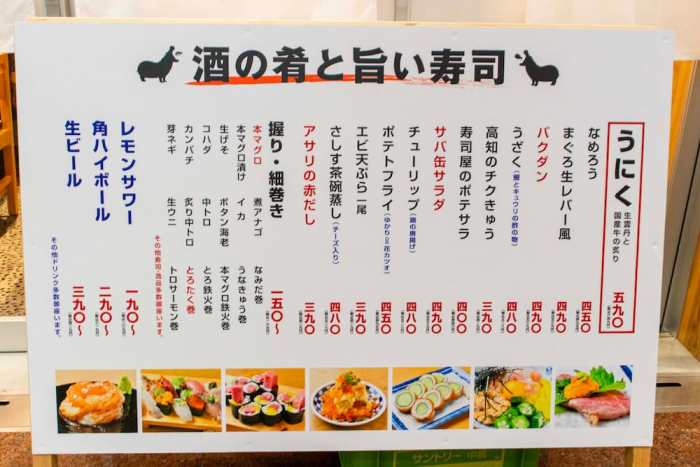 酒の肴と旨い寿司
うにく 生雲丹と国産牛の炙り 五九〇
なめろう 四五〇
まぐろ生レバー風 四九〇
バクダン 四九〇
うざく(鰻とキュウリの酢の物) 四八〇
高知のチクきゅう 三九〇
寿司屋のポテサラ 四〇〇
サバ缶サラダ 四九〇
チューリップ(鶏の唐揚げ) 四八〇
ポテトフライ(ゆかりor花カツオ) 四五〇
エビ天ぷら 一尾 三九〇
さしす茶碗蒸し(チーズ入り) 四八〇
アサリの赤だし 三九〇
握り・細巻き 一五〇〜
本マグロ 煮アナゴ なみだ巻
本マグロ漬け イカ うなきゅう巻
生げそ ボタン海老 本マグロ鉄火巻
コハダ 中トロ とろ鉄火巻
カンパチ 炙り中トロ とろたく巻
芽ネギ 生ウニ トロサーモン巻
その他寿司・逸品多数御座います。
レモンサワー 一九〇〜
角ハイボール 二九〇〜
生ビール 三九〇〜
その他ドリンク多数御座います。
サントリー 中瓶